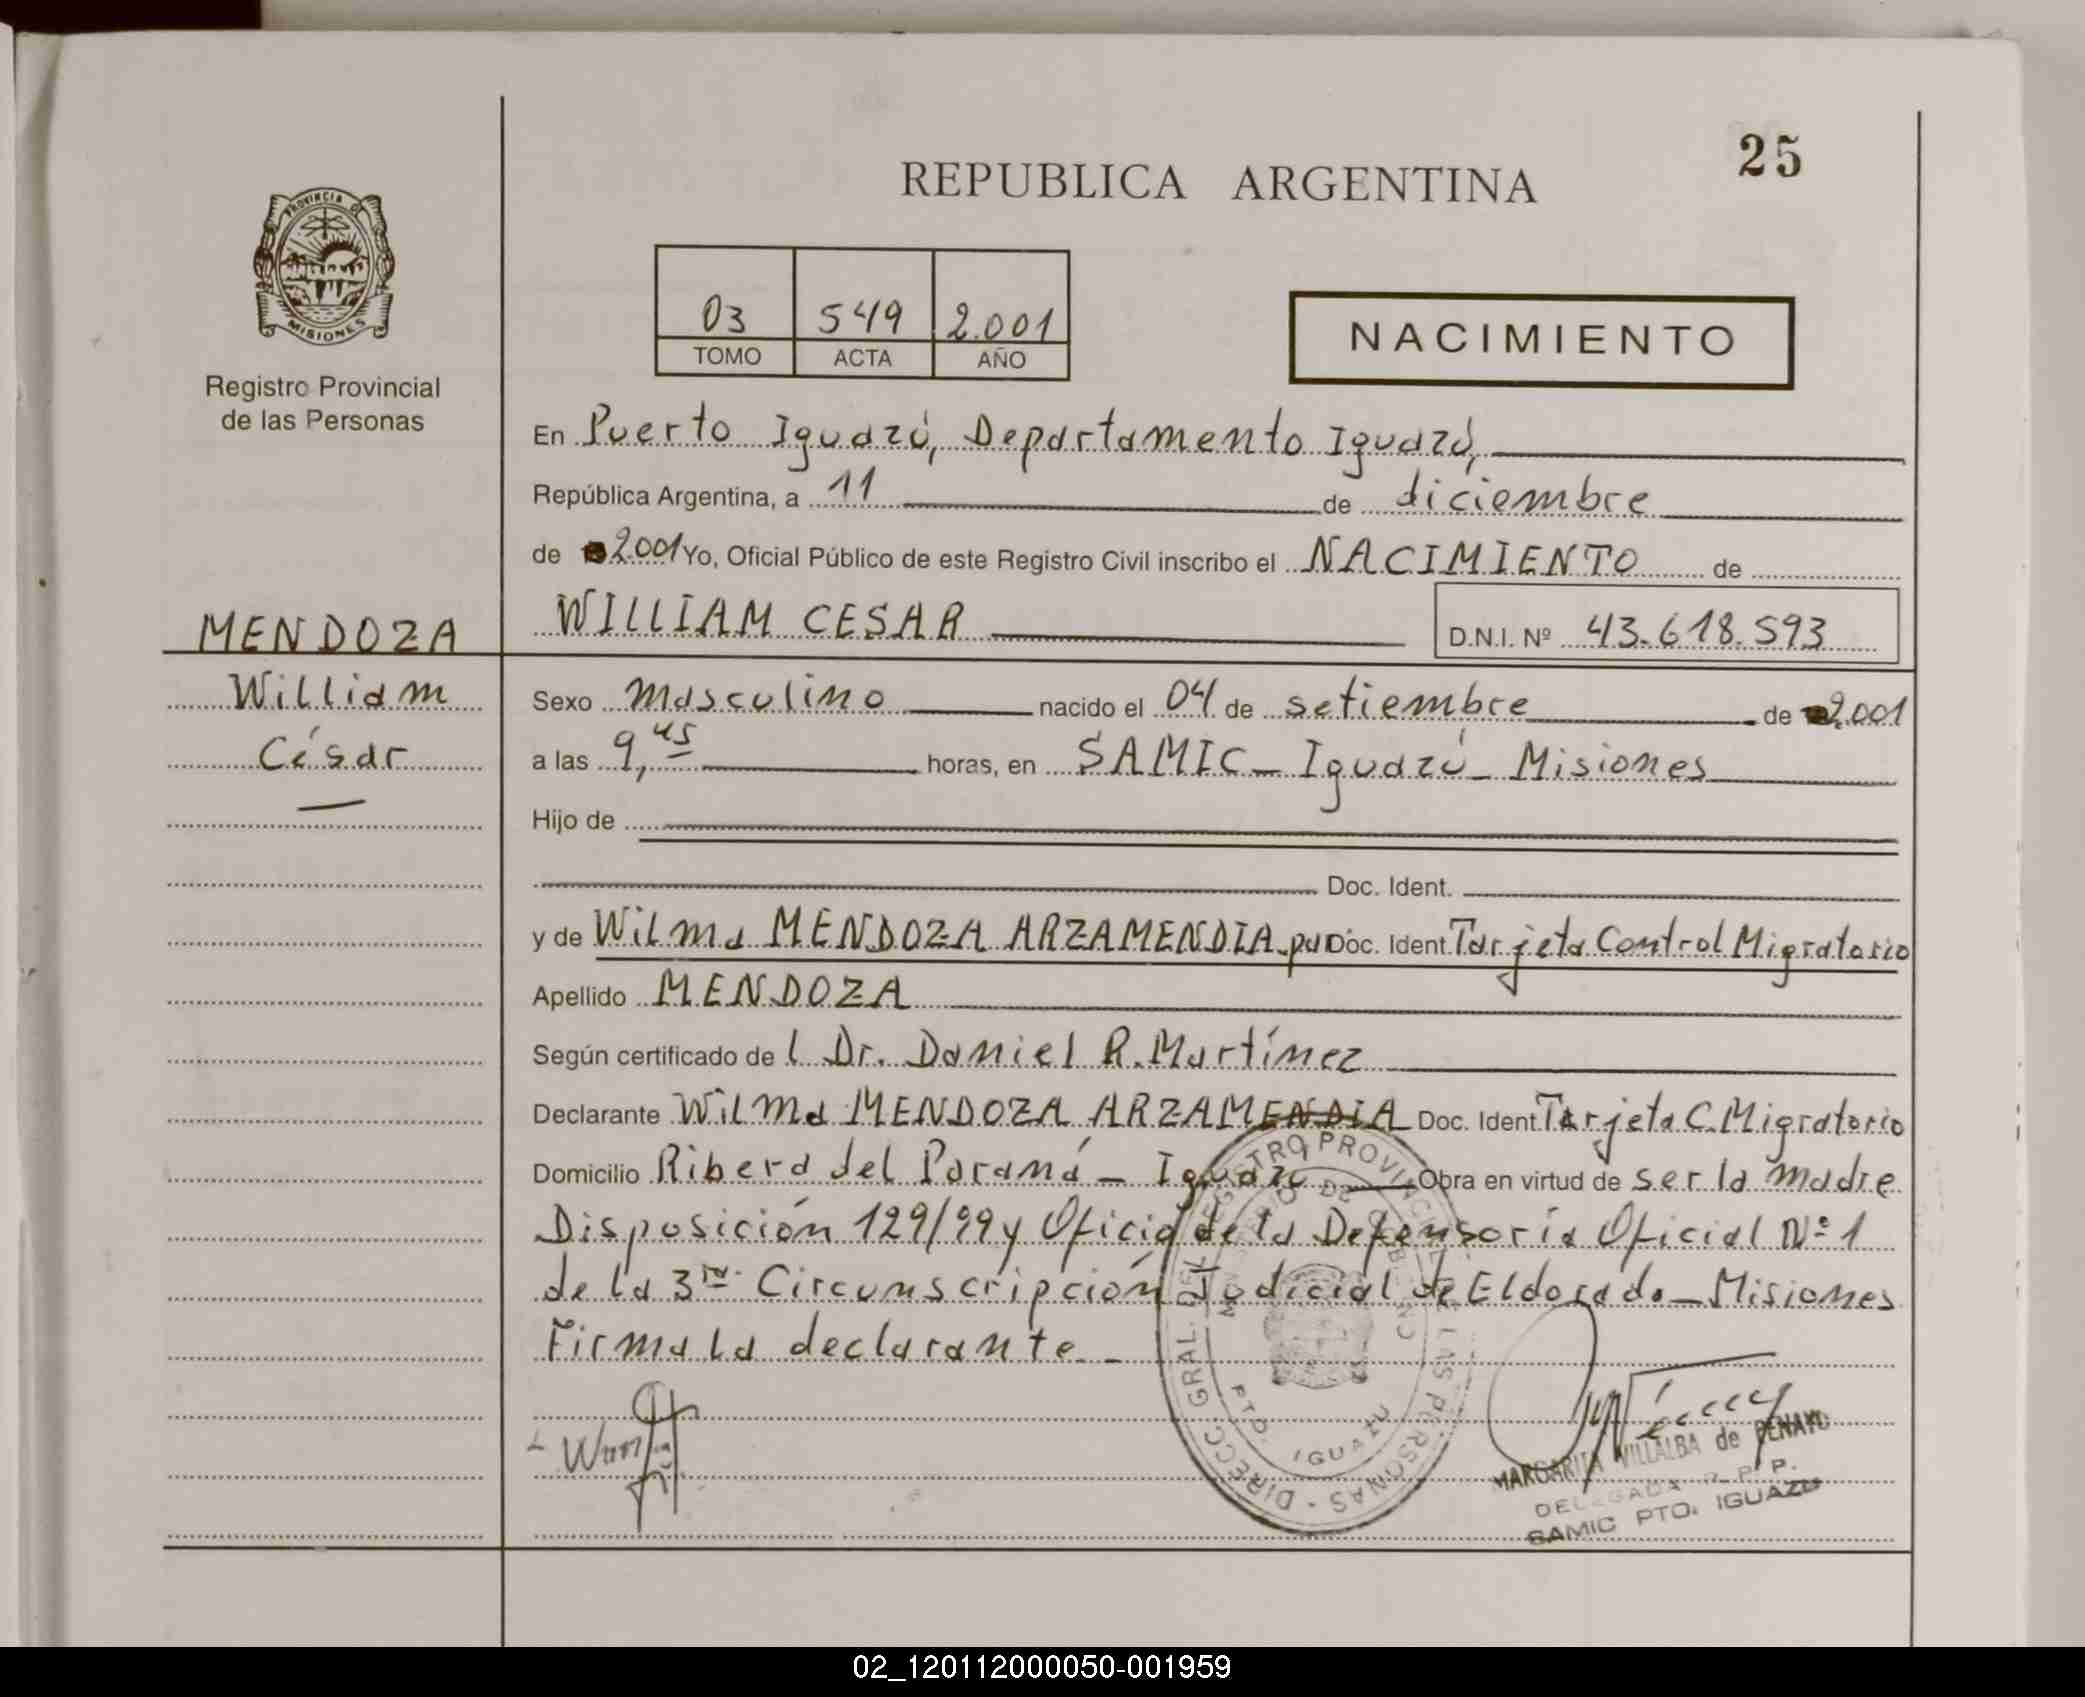 25
REPUBLICA ARGENTINA
PROVINCIA DE
MISIONES
Registro Provincial
de las Personas
03 549 2.001
TOMO ACTA AÑO
NACIMIENTO
En Puerto Iguazú, Departamento Iguazú,
República Argentina, a 11 de diciembre
de 2.001 Yo, Oficial Público de este Registro Civil inscribo el NACIMIENTO de
WILLIAM CESAR D.N.I. Nº 43.618.593
MENDOZA
William
César
Sexo masculino nacido el 04 de setiembre de 2.001
a las 9,45 horas, en SAMIC - Iguazú - Misiones
Hijo de
Doc. Ident.
y de Wilma MENDOZA ARZAMENDIA. Doc. Ident. Tarjeta Control Migratorio
Apellido MENDOZA
Según certificado del Dr. Daniel R. Martínez
Declarante Wilma MENDOZA ARZAMENDIA Doc. Ident. Tarjeta C. Migratorio
Domicilio Ribera del Paraná - Iguazú Obra en virtud de ser la madre
Disposición 129/99 y Oficio de la Defensoría Oficial Nº 1
de la 3ra Circunscripción Judicial de Eldorado - Misiones
Firma la declarante -
DIRECC. GRAL. DEL REGISTRO PROVINCIAL DE LAS PERSONAS
MINISTERIO DE GOBIERNO
PTO. IGUAZU
MARGARITA VILLALBA de PENAYO
DELEGADA R. P. P.
SAMIC PTO. IGUAZU
02_120112000050-001959